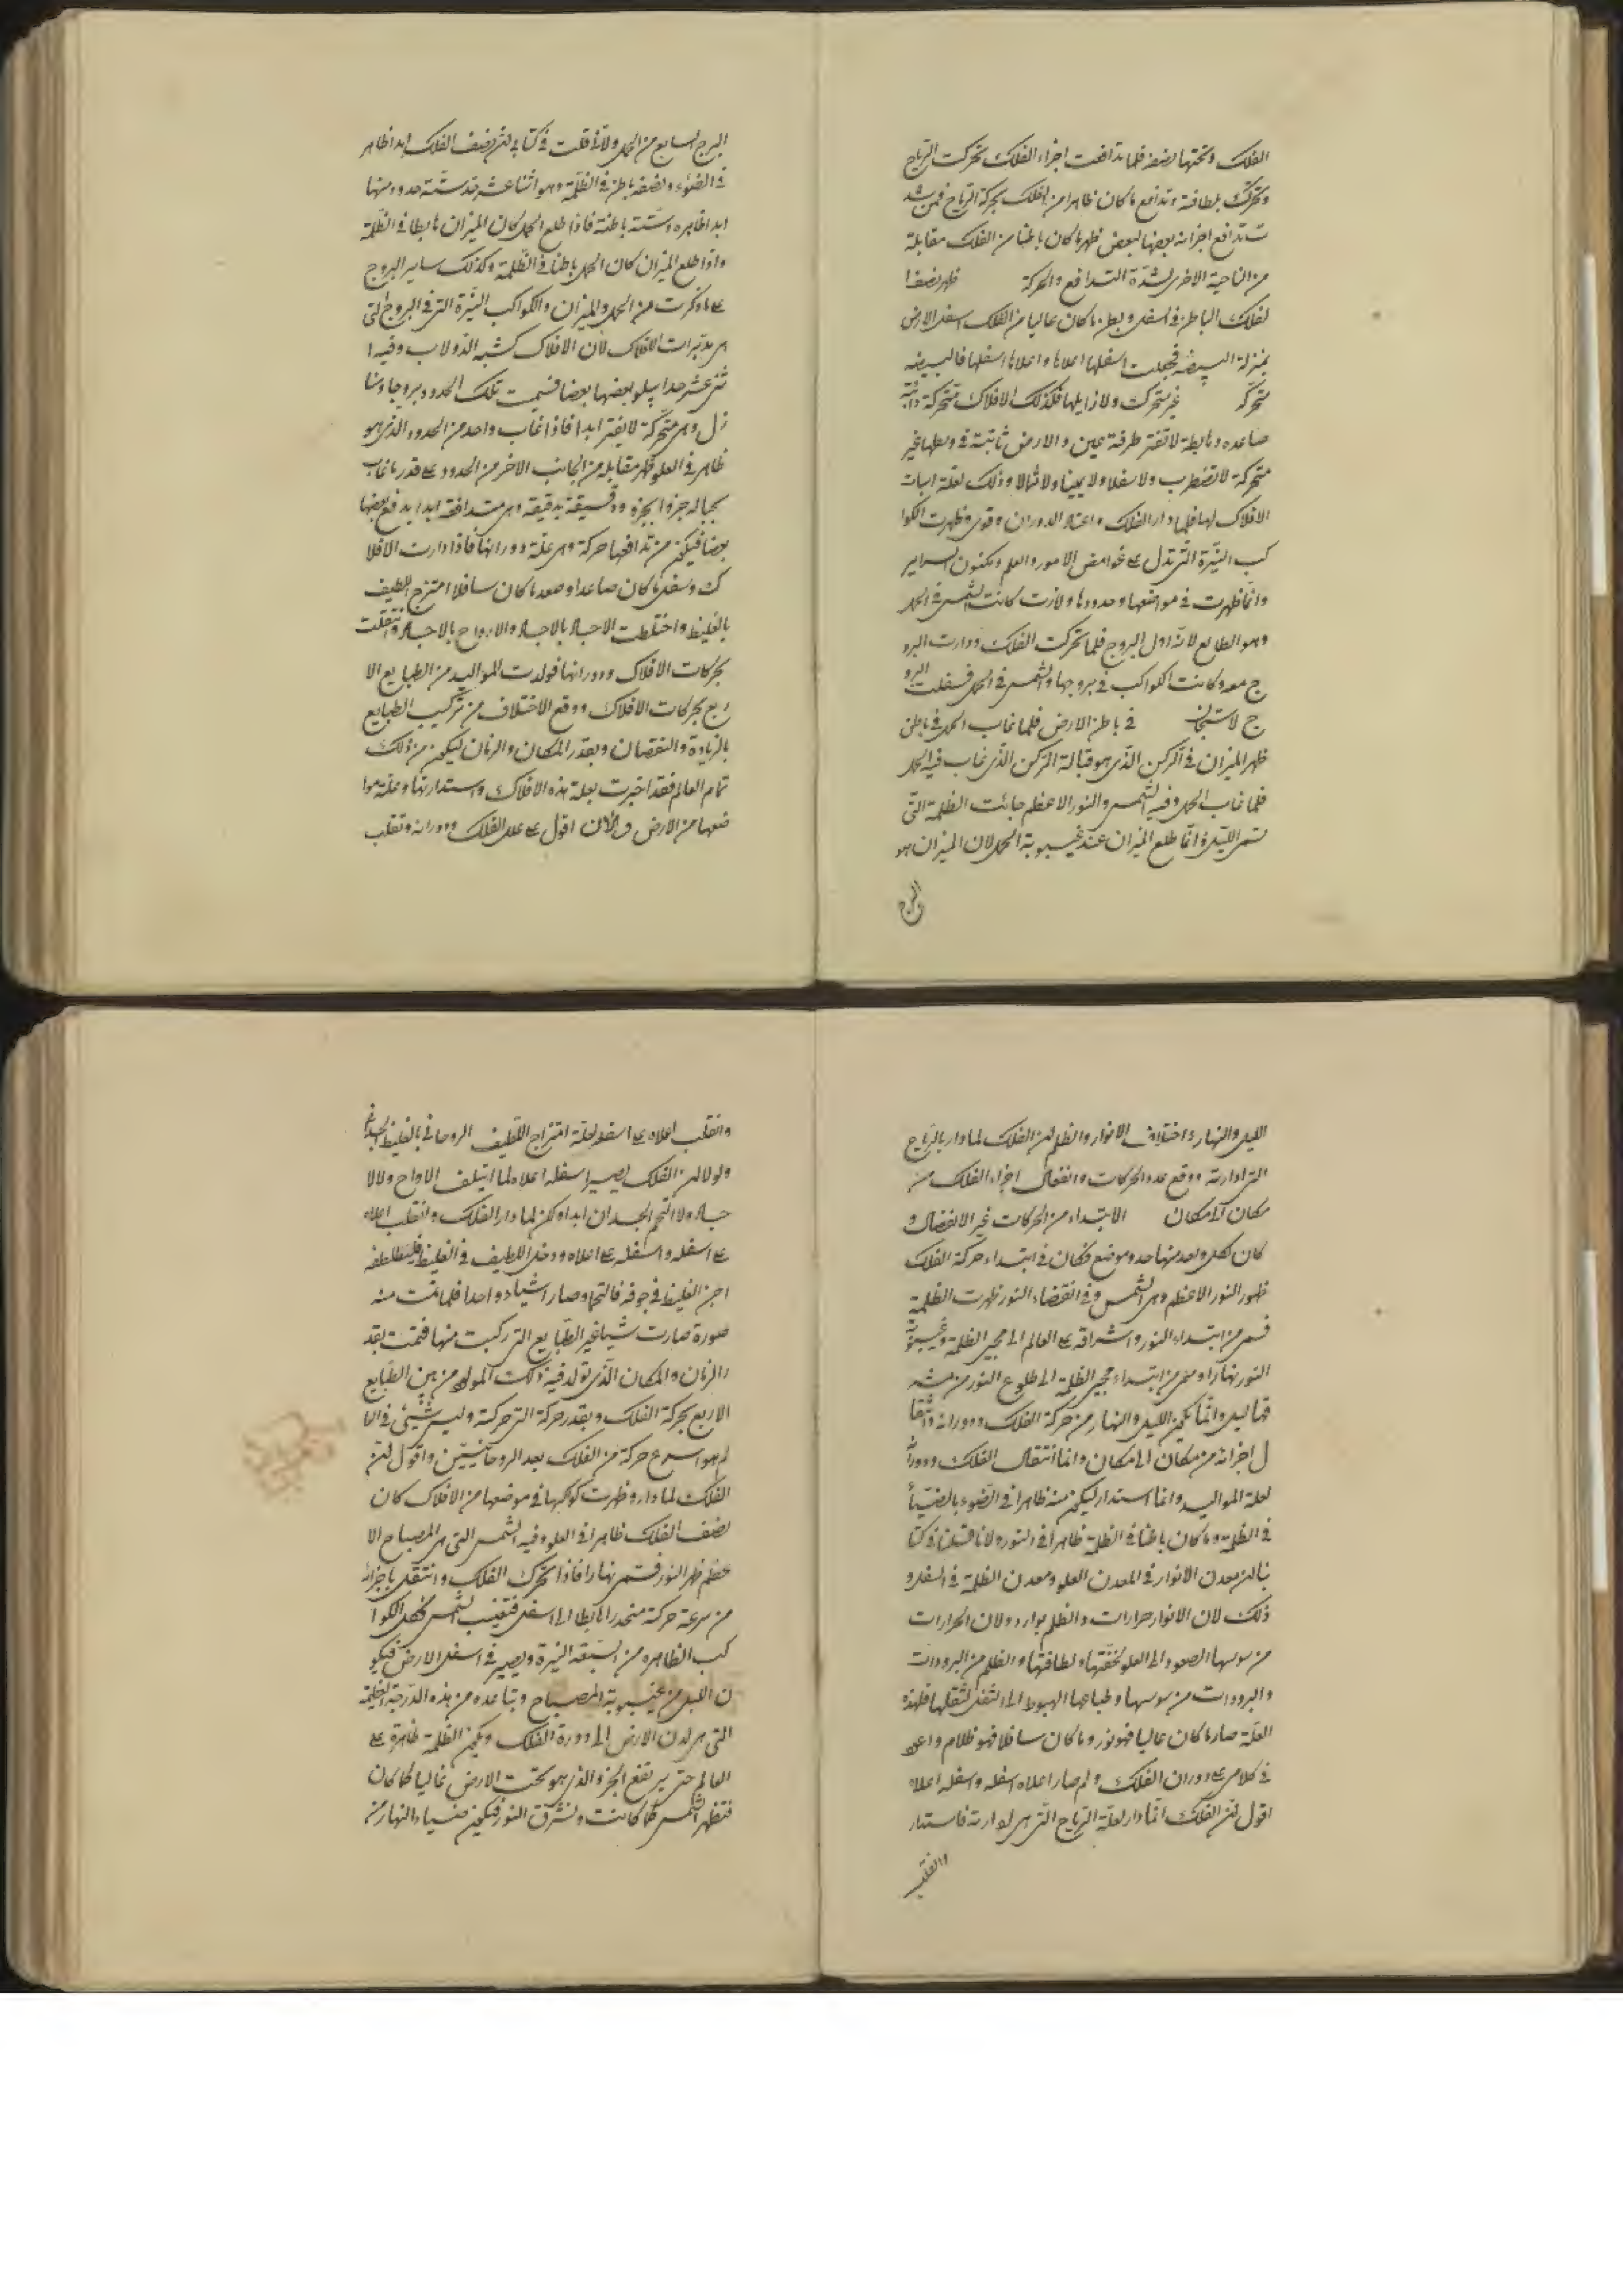 الفلك وتحتها نصفه فلما تدافعت اجزاء الفلك تحركت الرياح
وتحرك بلطافة وتدافع ما كان ظاهرا من الفلك بحركة الرياح فمن شد
ت تدافع اجزائه بعضها لبعض ظهر ما كان باطنا من الفلك مقابلة
من الناحية الاخرى لشدة التدافع والحركة ظهر نصف ا
لفلك الباطن في اسفل وبطن ما كان عاليا من الفلك اسفل الارض
بمنزلة البيضه فجعلت اسفلها اعلاها واعلاها اسفلها فالبيضه
متحركة غير متحركة ولا زايلها فكذلك الافلاك متحركة دائبة
صاعده وهابطة لا تفتر طرفة عين والارض ثابتة في وسطها غير
متحركة لا تضطرب ولا سفلا ولا يمينا ولا شمالا وذلك لعلة اثبات
الافلاك لها فلما دار الفلك واعتاد الدوران وقوى وظهرت الكوا
كب النيرة التي تدل على غوامض الامور والعلم ومكنون السراير
وانما ظهرت في مواضعها وحدودها ولازت كانت الشمس في الحمل
وهو الطالع لانه اول البروج فلما تحركت الفلك ودارت البرو
ج معه وكانت الكواكب في بروجها والشمس في الحمل فسفلت البرو
ج في باطن الارض فلما غاب الحمل في باطن
ظهر الميزان في الركن الذي هو قبالة الركن الذي غاب فيه الحمل
فلما غاب الحمل وفيه الشمس والنور الاعظم جائت الظلمة التي
تسمى الليل وانما طلع الميزان عند غيبوبة الحمل لان الميزان هو
البرج
البرج السابع من الحمل ولانا قلت في كتابي ان نصف الفلك ابدا ظاهر
في الضوء ونصفه باطن في الظلمة وهو اثنا عشر حد ستة حدود منها
ابدا ظاهره وستة باطنة فاذا طلع الحمل كان الميزان هابطا في الظلمة
واذا طلع الميزان كان الحمل باطنا في الظلمة وكذلك ساير البروج
على ما ذكرت من الحمل والميزان والكواكب النيرة التي في البروج التي
هي مدبرات الافلاك لان الافلاك كشبه الدولاب وفيه ا
ثنى عشر حدا يتلو بعضها بعضا فسميت تلك الحدود بروجا ومنا
زل وهى متحركة لا يفتر ابدا فاذا غاب واحد من الحدود الذى هو
ظاهر في العلو ظهر مقابله من الجانب الاخر من الحدود على قدر ما غاب
بحياله جزوا بجزو ودقيقة بدقيقة وهى متدافعة ابدا يدفع بعضها
بعضا فيكون من تدافعها حركة وهى علة دورانها فاذا دارت الافلا
ك وسفل ما كان صاعدا وصعد ما كان سافلا امتزج اللطيف
بالغليظ واختلطت الاجساد بالاجساد والارواح بالاجساد وانتقلت
بحركات الافلاك ودورانها فولدت المواليد من الطبايع الا
ربع بحركات الافلاك ووقع الاختلاف من تركيب الطبايع
بالزيادة والنقصان وبقدر المكان والزمان ليكون من ذلك
تمام العالم فقد اخبرت بعلة هذه الافلاك واستدارتها وعلة موا
ضعها من الارض والان اقول على علل الفلك ودورانه وتقلب
الليل والنهار واختلاف الانوار والظلم ان الفلك لما دار بالرياح
التي ادارته ووقع عدد الحركات وانفعال اجزاء الفلك من
مكان الى مكان الابتداء من الحركات غير الانفصال و
كان لكل واحد منها حد وموضع فكان في ابتداء حركة الفلك
ظهور النور الاعظم وهى الشمس وفي انقضاء النور ظهرت الظلمة
فسمى من ابتداء النور واشراقه على العالم الى مجيئ الظلمة وغيبوبة
النور نهارا وسمى من ابتداء مجيئ الظلمة الى طلوع النور من مشر
قها ليل وانما يكون الليل والنهار من حركة الفلك ودورانه وانتقا
ل اجزائه من مكان الى مكان وانما انتقال الفلك ودورانه
لعلة المواليد وانما استدار ليكون منه ظاهرا في الضوء بالضياء
في الظلمة وما كان باطنا في الظلمة ظاهرا في النور ولانا قد قلنا في كتا
بنا ان معدن الانوار في المعدن العلو ومعدن الظلمة في السفل و
ذلك لان الانوار حرارات والظلم بوارد ولان الحرارات
من سوسها الصعود الى العلو لخفتها ولطافتها والظلم من البرودات
والبرودات من سوسها وطباعها الهبوط الى السفل لثقلها فلهذه
العلة صار ما كان عاليا فهو نور وما كان سافلا فهو ظلام واعلم
في كلامى على دوران الفلك ولم صار اعلاه اسفله واسفله اعلاه
اقول ان الفلك انما دار لعلة الرياح التي هى ادارته فاستدار
وانقلب
وانقلب اعلاه على اسفله لعلة امتزاج اللطيف الروحاني بالغليظ الجسدانى
ولولا ان الفلك يصير اسفله اعلاه لما ايتلف الارواح ولا الا
جساد ولا التحم الجسدان ابدا ولكن لما دار الفلك وانقلب اعلاه
على اسفله واسفله على اعلاه ودخل اللطيف في الغليظ فلطفه
اجن الغليظ في جوفه فالتحما وصارا شيا واحدا فلما تمت منه
صورة صارت شيا غير الطبايع التي ركبت منها فتمت بقد
ر الزمان والمكان الذى تولد فيه ذلك المولود من بين الطبايع
الاربع بحركة الفلك وبقدر حركة التي حركته وليس شيئ في العا
لم هو اسرع حركة من الفلك بعد الروحانيين واقول ان
الفلك لما دار وظهرت كوكبها في موضعها من الافلاك كان
نصف الفلك ظاهرا في العلو وفيه الشمس التي هى المصباح الا
عظم ظهر النور فسمى نهارا فاذا تحرك الفلك وانتقل باجزائه
من سرعة حركته منحدرا هابطا الى اسفل فتغيب الشمس وكل الكوا
كب الظاهره من السبعة النيرة ويصير في اسفل الارض فيكو
ن الليل من غيبوبة المصباح وتباعده من هذه الدرجة العظيمة
التي هى لدن الارض الى دورة الفلك ويكون الظلمة ظاهرة على
العالم حتى يرتفع الجزو الذى هو تحت الارض عاليا كما كان
فتظهر الشمس كما كانت وتشرق النور فيكون ضياء النهار من